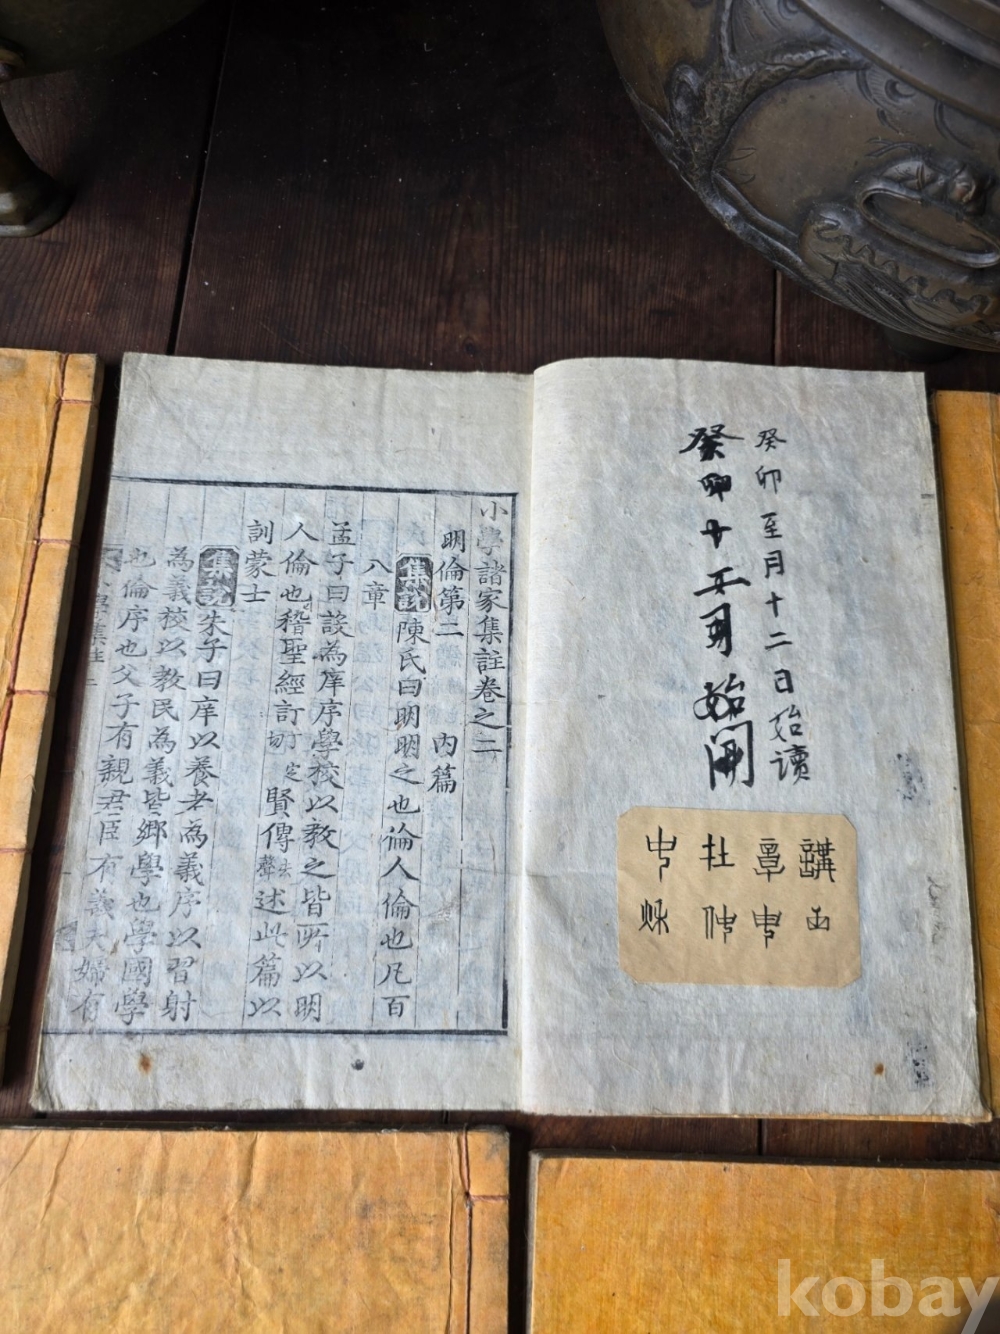 癸卯至月十二日始讀
癸卯十
始開
講
杜仲
小學諸家集註卷之二
明倫第二 內篇
集說 陳氏曰明明之也倫人倫也凡百
八章
孟子曰設為庠序學校以敎之皆所以明
人倫也稽聖經訂丁定切賢傳去聲述此篇以
訓蒙士
集說 朱子曰庠以養老為義序以習射
為義校以敎民為義皆鄉學也學國學
也倫序也父子有親君臣有義夫婦有
kobay